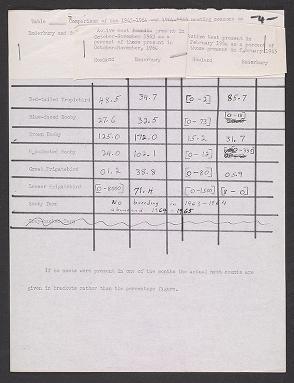 Table Comparison of the 1963-1964 and nesting seasons on -4-
Enderbury and
Active nest present in
October-November 1963 as a
percent of those present in
October-November, 1964
Howland Enderbury
Active nest present in
February 1964 as a percent of
those present in February 1965
Howland Enderbury
Red-tailed Tropicbird 48.5 34.7 [0-2] 85.7
Blue-faced Booby 27.6 32.5 [0-73]
Brown Booby 125.0 172.0 15.2 31.7
Red-footed Booby 24.0 102.1 [0-12]
Great Frigatebird 01.2 38.8 [0-80] 05.9
Lesser Frigatebird [0-8000] 71.4 [0-1500] [8-0]
Sooty Tern No breeding in 1963-1964
1964-1965
If no nests were present in one of the months the actual nest counts are
given in brackets rather than the percentage figure.